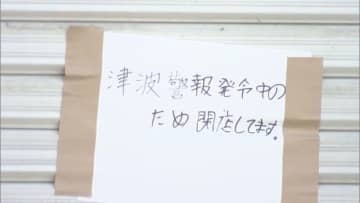 津波警報発令中の
ため閉店してます。